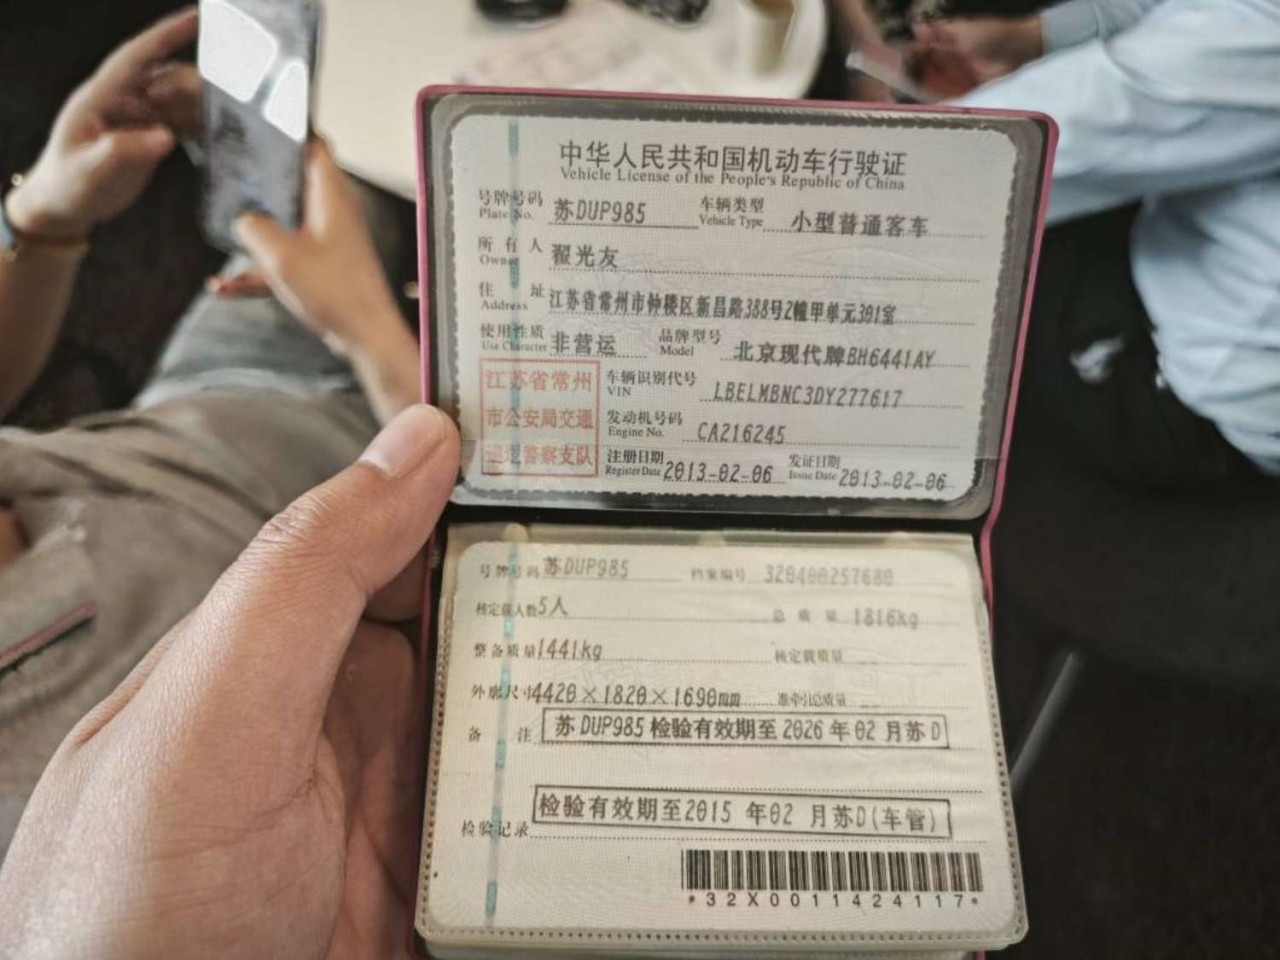 中华人民共和国机动车行驶证
Vehicle License of the People's Republic of China
号牌号码 苏DUP985 车辆类型 小型普通客车
Plate No. Vehicle Type
所有人 翟光友
Owner
住址 江苏省常州市钟楼区新昌路388号2幢甲单元301室
Address
使用性质 非营运 品牌型号 北京现代牌BH6441AY
Use Character Model
江苏省常州
市公安局交通
巡逻警察支队
车辆识别代号 LBELMBNC3DY277617
VIN
发动机号码 CA216245
Engine No.
注册日期 2013-02-06 发证日期 2013-02-06
Register Date Issue Date
号牌号码 苏DUP985 档案编号 320400257680
核定载人数 5人 总质量 1816kg
整备质量 1441kg 核定载质量 --
外廓尺寸 4420×1820×1690mm 准牵引总质量 --
备注 苏DUP985 检验有效期至 2026 年 02 月苏D
检验有效期至2015 年02 月苏D(车管)
检验记录
*32X0011424117*